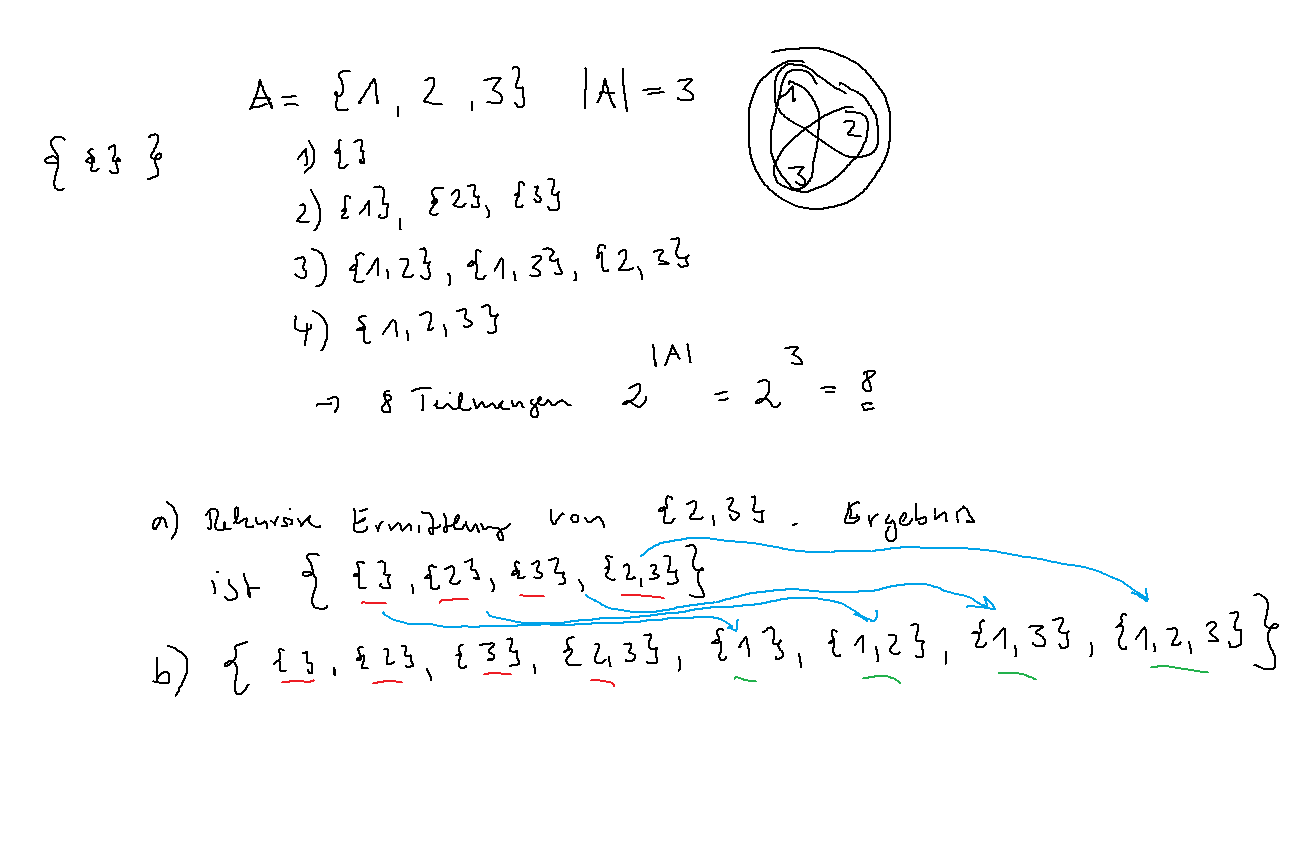 A = {1, 2, 3} |A| = 3
{ {} }
1) {}
2) {1}, {2}, {3}
3) {1,2}, {1,3}, {2,3}
4) {1,2,3}
1
2
3
→ 8 Teilmengen 2^|A| = 2^3 = 8
a) Rekursive Ermittlung von {2,3}. Ergebnis
ist { {}, {2}, {3}, {2,3} }
b) { {}, {2}, {3}, {2,3}, {1}, {1,2}, {1,3}, {1,2,3} }